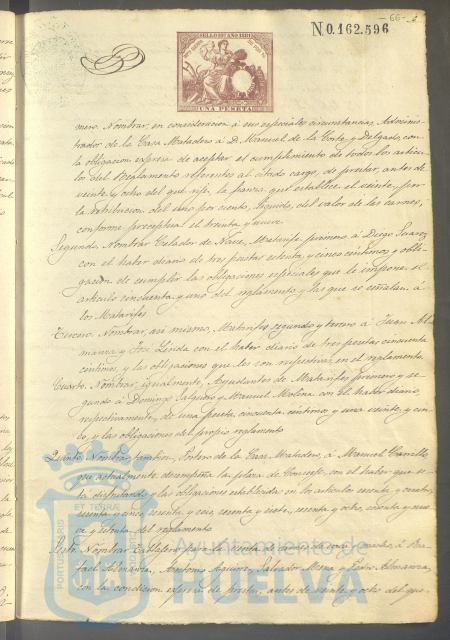 - 66 -
SELLO 11º AÑO 1881
N 0.162.596
UNA PESETA
mero. Nombrar, en consideracion á sus especiales circunstancias, Adminis-
trador de la Casa Matadero á D. Manuel de la Corte y Delgado, con
la obligacion espresa de aceptar el cumplimiento de todos los articu-
los del Reglamento referentes al citado cargo, de prestar, antes de
veinte y ocho del que rije, la fianza que establece el veinte, por
la retribucion del uno por ciento, líquido, del valor de las carnes,
conforme preceptua el treinta y nueve
Segundo. Nombrar Celador de Nave, Matarife primero á Diego Suarez
con el haber diario de tres pesetas setenta y cinco céntimos y obli-
gacion de cumplir las obligaciones especiales que le impone el
artículo cincuenta y uno del reglamento y las que se señalan á
los Matarifes
Tercero. Nombrar, asi mismo, Matarifes segundo y tercero á Juan Al
manza y José con el haber diario de tres pesetas cincuenta
céntimos, y las obligaciones que les son respectivas en el reglamento.
Cuarto. Nombrar, igualmente, Ayudantes de Matarifes primero y se-
gundo á Domingo Salguero y Manuel Molina con el haber diario,
respectivamente, de una peseta cincuenta céntimos y una veinte y cin-
co, y las obligaciones del propio reglamento
Quinto. Nombrar, tambien, Portero de la Casa Matadero, á Manuel
que actualmente desempeña la plaza de Conserje, con el haber que es-
ta disfrutando y las obligaciones establecidas en los artículos sesenta y cuatro,
sesenta y cinco, sesenta y seis, sesenta y siete, sesenta y ocho, sesenta y nue-
ve y setenta del reglamento
Sesto. Nombrar Tablajeros para la venta de carnes á Ra-
fael Almanza, Antonio Aguirre, Salvador Mena y Pedro Almanza,
con la condicion espresa de prestar, antes de veinte y ocho del que
ET TERRAE
PORTUS MARIS
Ayuntamiento de
HUELVA